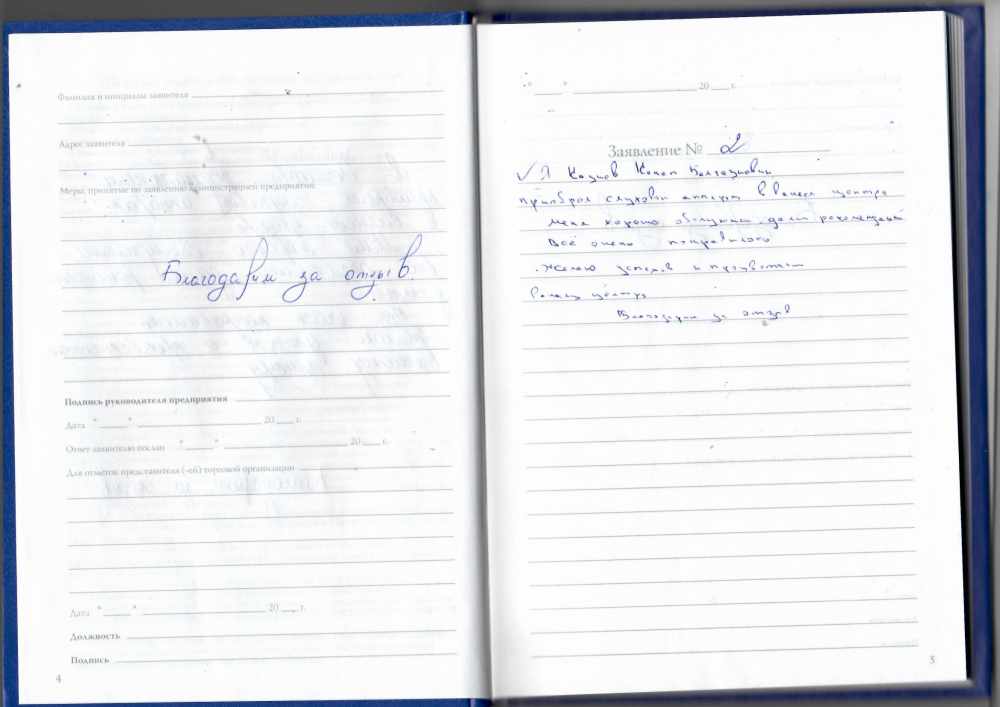 Фамилия и инициалы заявителя
Адрес заявителя
Меры, принятые по заявлению администрацией предприятия:
Благодарим за отзыв.
Подпись руководителя предприятия
Дата "___" ___ 20 ___ г.
Ответ заявителю послан "___" ___ 20 ___ г.
Для отметок представителя (-ей) торговой организации
Дата "___" ___ 20 ___ г.
Должность
Подпись
4
"___" ___ 20 ___ г.
Заявление № 2
Я Канат
приобрел слуховой аппарат в вашем центре
меня хорошо обслужили дали рекомендации
Всё очень понравилось
Желаю успехов и процветания
Вашему центру
Благодарим за отзыв
5